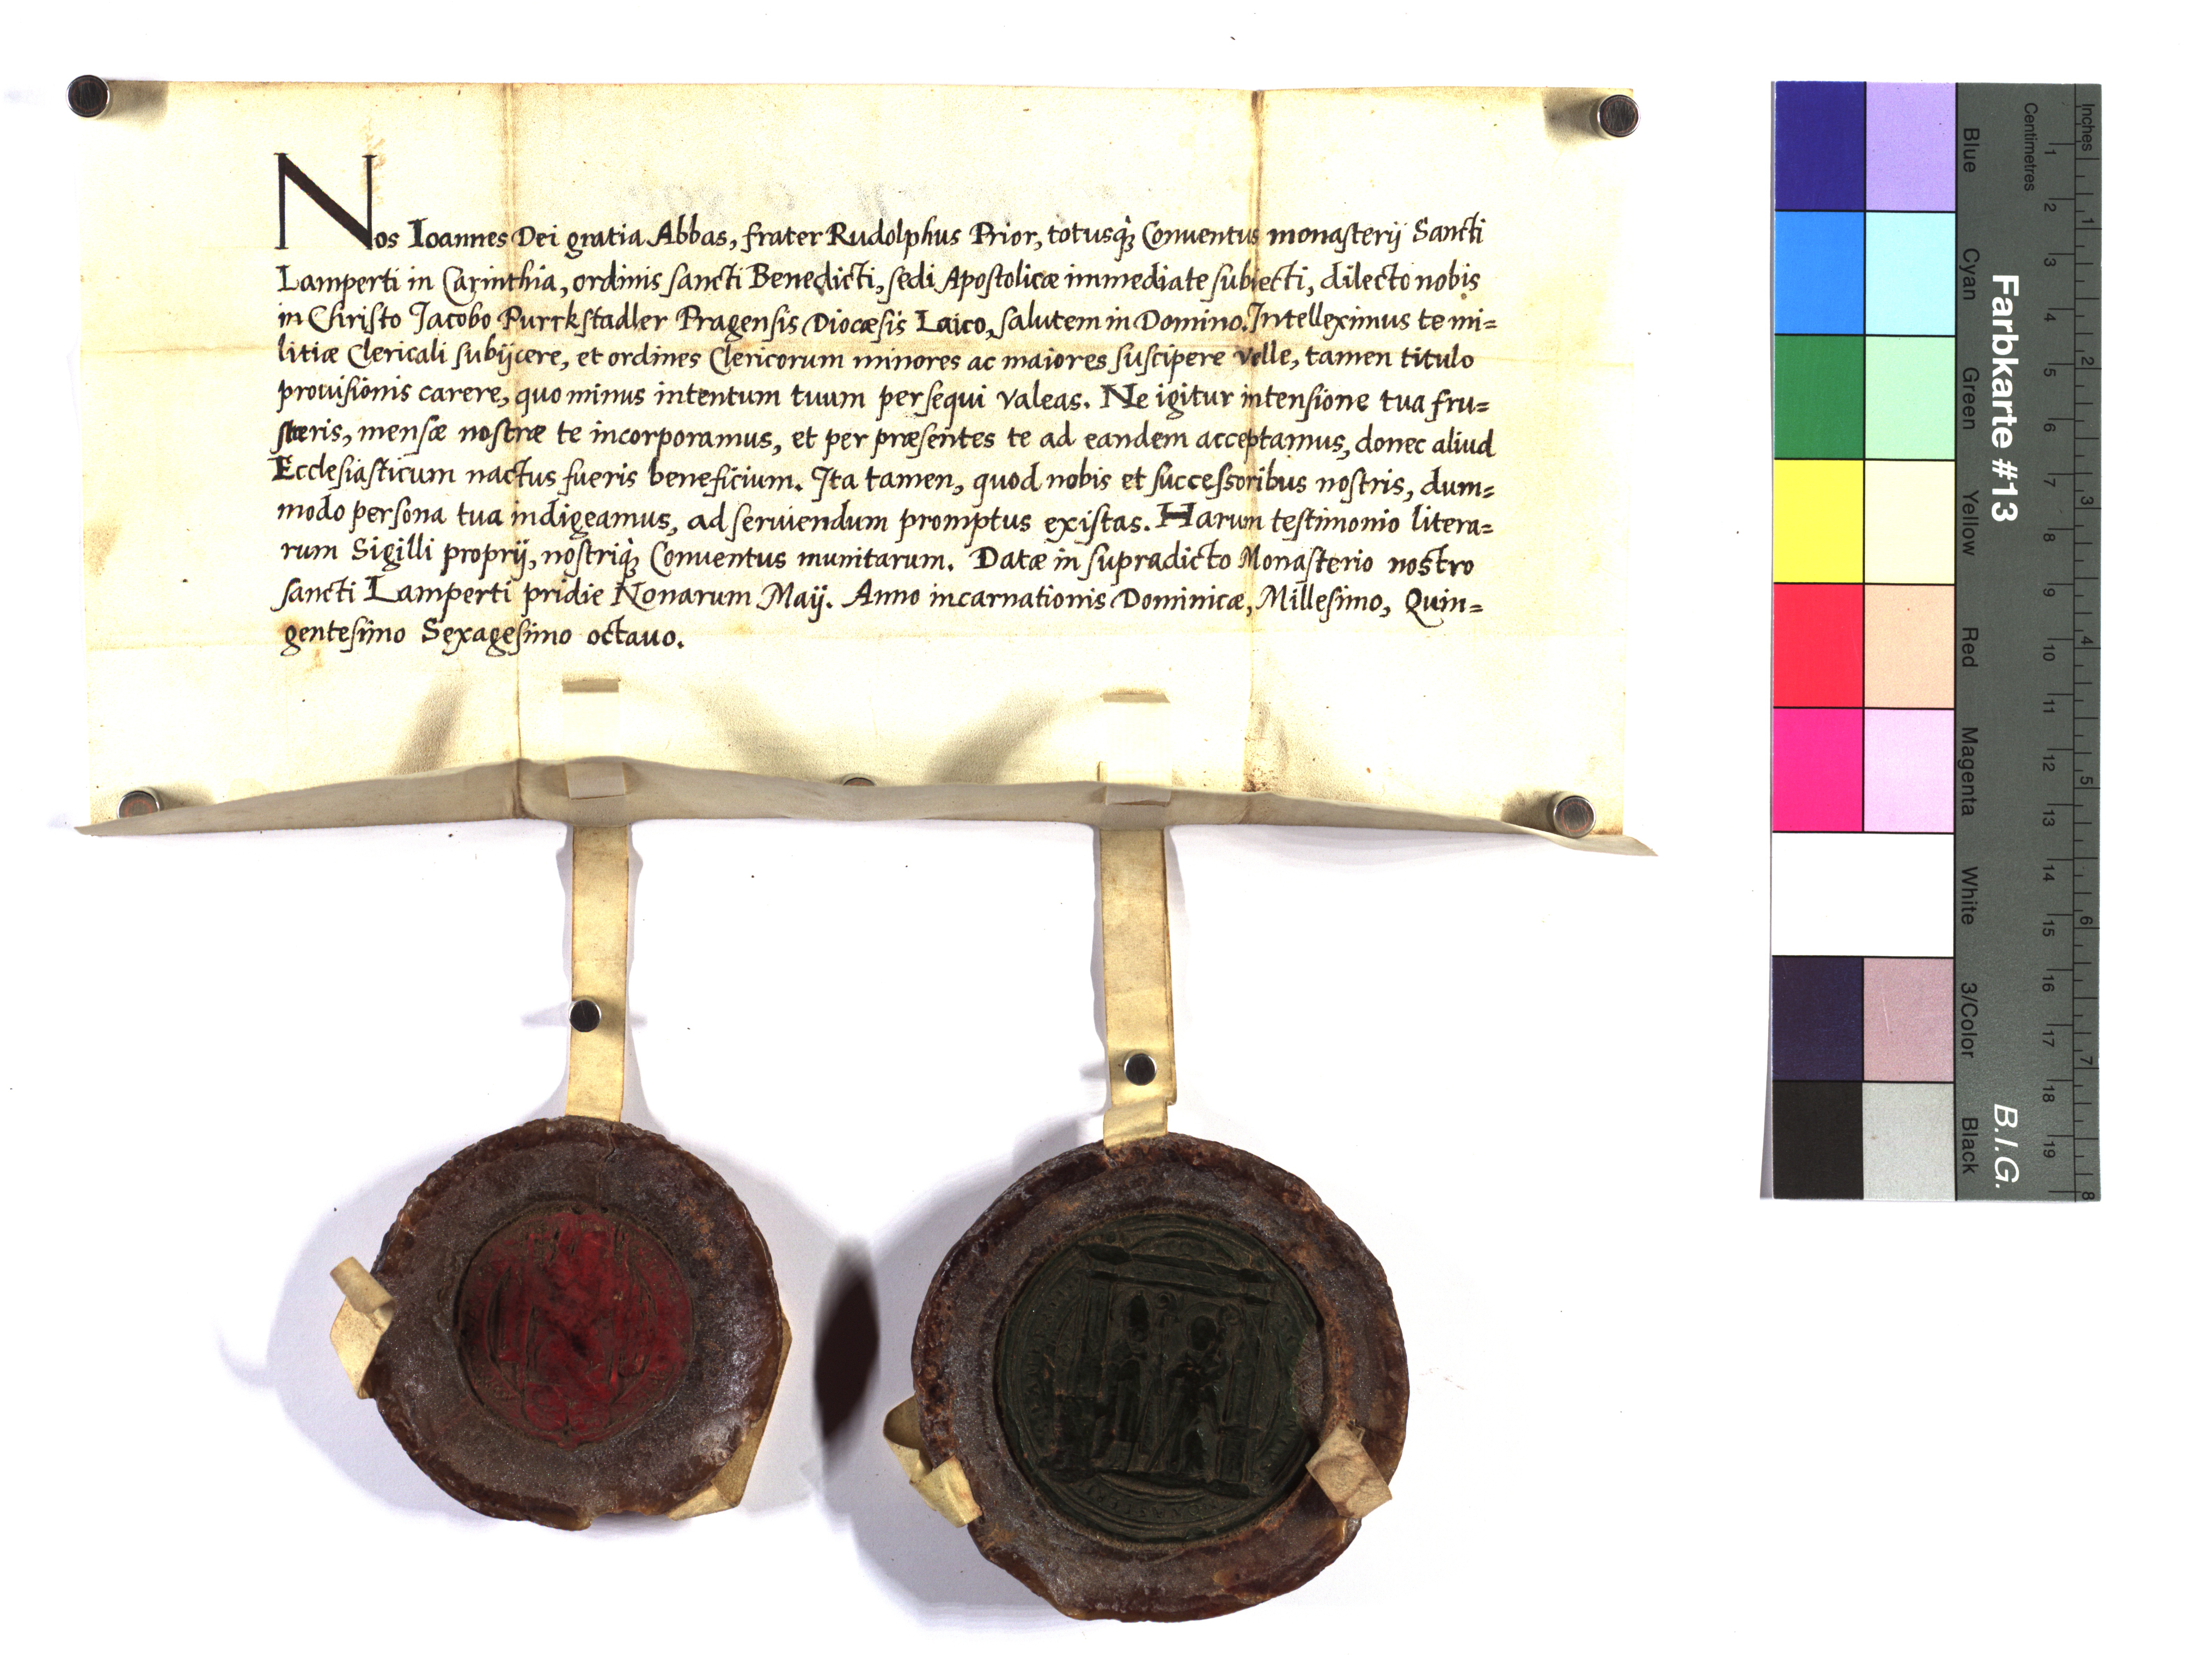 Nos Ioannes Dei gratia Abbas, frater Rudolphus Prior, totusq; Conuentus monasterij Sancti
Lamperti in Carinthia, ordinis sancti Benedicti, sedi Apostolicæ immediate subiecti, dilecto nobis
in Christo Jacobo Purrkstadler Pragensis Diocæsis Laico, salutem in Domino. Intelleximus te mi=
litiæ Clericali subijcere, et ordines Clericorum minores ac maiores suscipere velle, tamen titulo
prouisionis carere, quo minus intentum tuum persequi valeas. Ne igitur intensione tua fru=
steris, mensæ nostræ te incorporamus, et per præsentes te ad eandem acceptamus, donec aliud
Ecclesiasticum nactus fueris beneficium. Ita tamen, quod nobis et successoribus nostris, dum=
modo persona tua indigeamus, ad seruiendum promptus existas. Harum testimonio litera=
rum Sigilli proprij, nostriq; Conuentus munitarum. Datæ in supradicto Monasterio nostro
sancti Lamperti pridie Nonarum Maij. Anno incarnationis Dominicæ, Millesimo, Quin=
gentesimo Sexagesimo octauo.
Farbkarte #13
B.I.G.
Inches
1 2 3 4 5 6 7 8
Centimetres
1 2 3 4 5 6 7 8 9 10 11 12 13 14 15 16 17 18 19
Blue
Cyan
Green
Yellow
Red
Magenta
White
3/Color
Black